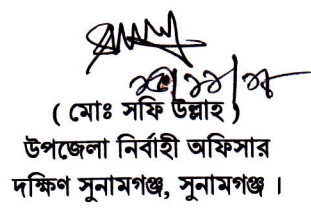 ( মোঃ সফি উল্লাহ )
উপজেলা নির্বাহী অফিসার
দক্ষিণ সুনামগঞ্জ, সুনামগঞ্জ ।